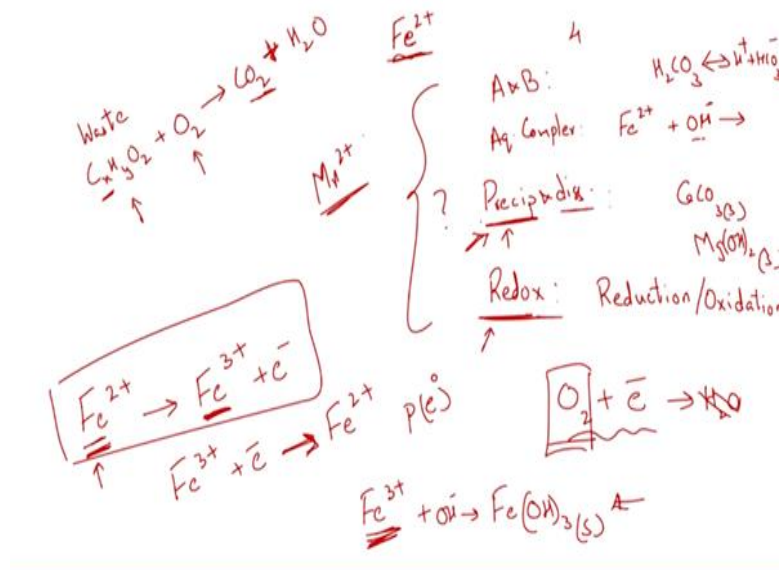 Fe²⁺
4
Waste
CₓHᵧO₂ + O₂ → CO₂ + H₂O
Mn²⁺
?
A&B: H₂CO₃ ⇔ H⁺ + HCO₃⁻
Aq. Complex: Fe²⁺ + OH⁻ →
Precip & diss.: CaCO₃(s)
Mg(OH)₂(s)
Redox: Reduction/Oxidation
Fe²⁺ → Fe³⁺ + e⁻
Fe³⁺ + e⁻ → Fe²⁺ p(e°)
O₂ + e⁻ →
Fe³⁺ + OH⁻ → Fe(OH)₃(s)